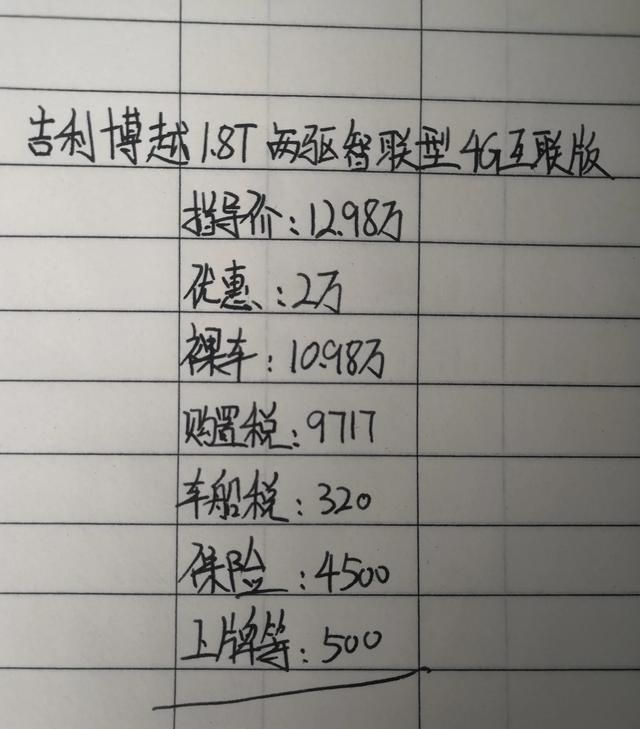 吉利博越1.8T两驱智联型4G互联版
指导价:12.98万
优惠:2万
裸车:10.98万
购置税:9717
车船税:320
保险:4500
上牌等:500